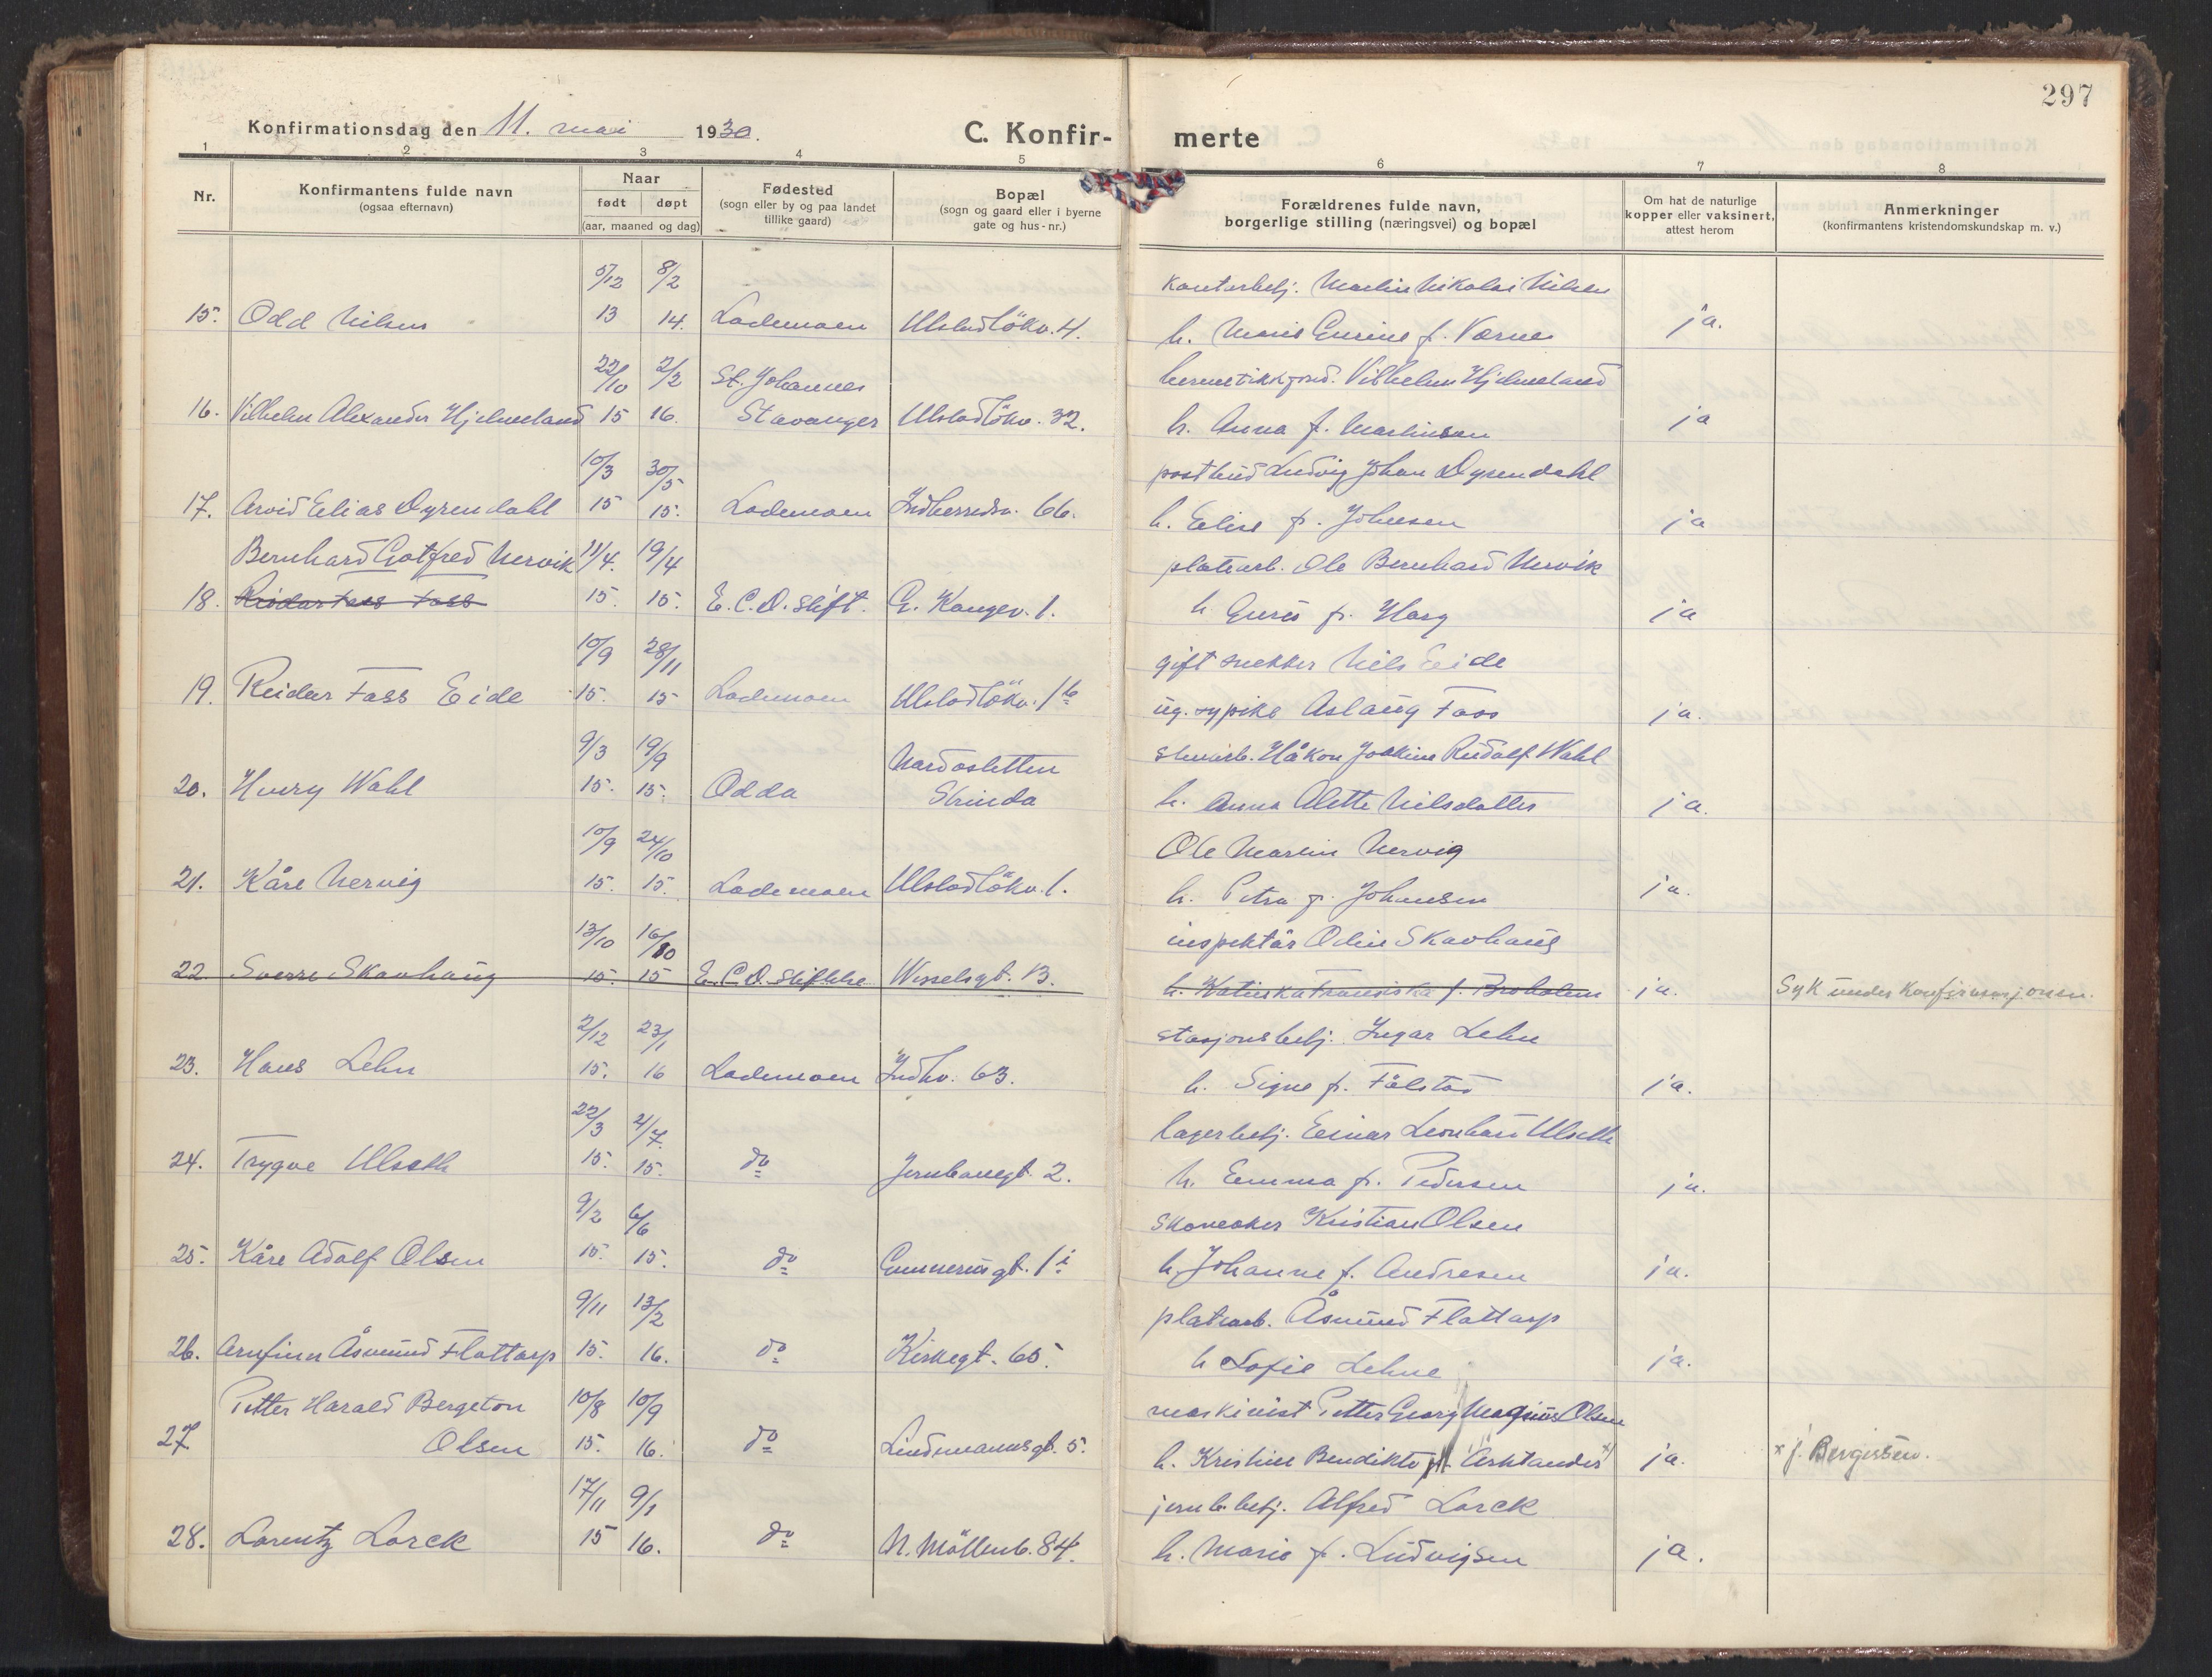 297
Konfirmationsdag den 11. mai 1930.
C. Konfir-merte
1 2 3 4 5 6 7 8
Nr.
Konfirmantens fulde navn
(ogsaa efternavn)
Naar
født døpt
(aar, maaned og dag)
Fødested
(sogn eller by og paa landet
tillike gaard)
Bopæl
(sogn og gaard eller i byerne
gate og hus-nr.)
Forældrenes fulde navn,
borgerlige stilling (næringsvei) og bopæl
Om hat de naturlige
kopper eller vaksinert,
attest herom
Anmerkninger
(konfirmantens kristendomskundskap m. v.)
5/12 8/2 Kontorbetj. Martin Nikolai Nilsen
15. Odd Nilsen 13 14. Lademoen Ulstadlökv. 4. h. Marie f. Værnes ja.
22/10 2/2 St. Johannes Vilhelm Hjelmeland
16. Vilhelm Alexander Hjelmeland 15 16. Stavanger Ulstadlökv. 32. h. Anna f. Martinsen ja
10/3 30/5 postbud Ludvig Johan Dyrendahl
17. Arvid Elias Dyrendahl 15 15. Lademoen Indherredsv. 66. h. Elise f. Johnsen ja
Bernhard Gotfred Nervik 11/4. 19/4 platearb. Ole Bernhard Nervik
18. Reidar Fass 15. 15. E. C. D. stift. G. Kongev. 1. h f. Harg ja
10/9 28/11 gift snekker Nils Eide
19. Reidar Fass Eide 15. 15 Lademoen Ulstadlökv. 1b ug. sypike Aslaug Fass ja.
9/3 19/9 Nardosletten Håkon Joakim Rudolf Wahl
20. Henry Wahl 15. 15. Odda Strinda h. Anna Alette Nilsdatter ja.
10/9 24/10 Ole Martin Nervig
21. Kåre Nervig 15. 15. Lademoen Ulstadlökv. 1. h. Petra f. Johansen ja.
13/10 16/10 inspektör Odin Skavhaug
22. Sverre Skavhaug 15. 15 E. C. D. stiftelse Wesselsgt. 13. h. Franciska f. Broholm ja. Syk under konfirmasjonen.
2/12 23/1 stasjonsbetj. Ingar Lehn
23. Hans Lehn 15. 16 Lademoen Indhv. 63. h. Signe f. Falstad ja.
22/3 4/7 lagerbetj. Einar Leonhard Ulseth
24. Trygve Ulseth 15. 15. do Jernbanegt. 2. h. Emma f. Pedersen ja.
9/2 6/6 skomaker Kristian Olsen
25. Kåre Adolf Olsen 15. 15. do Gunnerusgt. 1 i h. Johanne f. Andresen ja.
9/11 13/2 platearb. Åsmund Flattarp
26. Arnfinn Åsmund Flattarp 15. 16. do Kirkegt. 65. h Sofie Lehne ja.
Petter Harald Bergeton 10/8 10/9 maskinist Petter Georg Magnus Olsen
27. Olsen 15. 16. do Lindemannsgt. 5. h. Kristine Bendikte f. x) ja. x f. Bergersen.
17/11 9/1 jernb.betj. Alfred Lorck
28. Lorentz Lorck 15 16. do N. Möllenb. 84. h. Marie f. Ludvigsen ja.